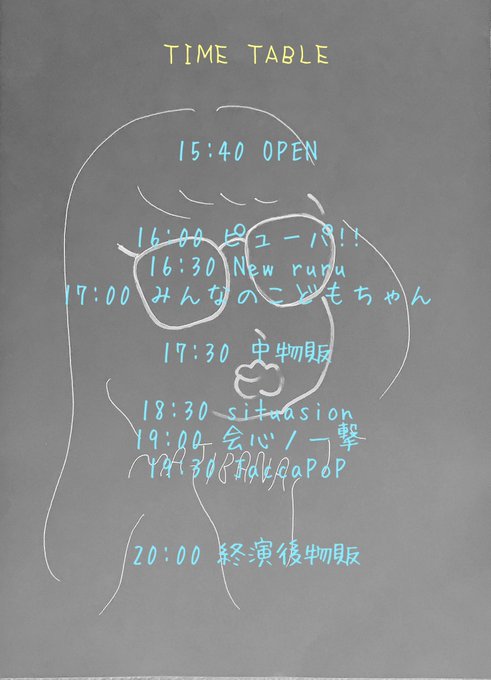 TIME TABLE
15:40 OPEN
16:00 ピューパ!!
16:30 New ruru
17:00 みんなのこどもちゃん
17:30 中物販
18:30 situasion
19:00 会心ノ一撃
19:30 faccaPoP
20:00 終演後物販